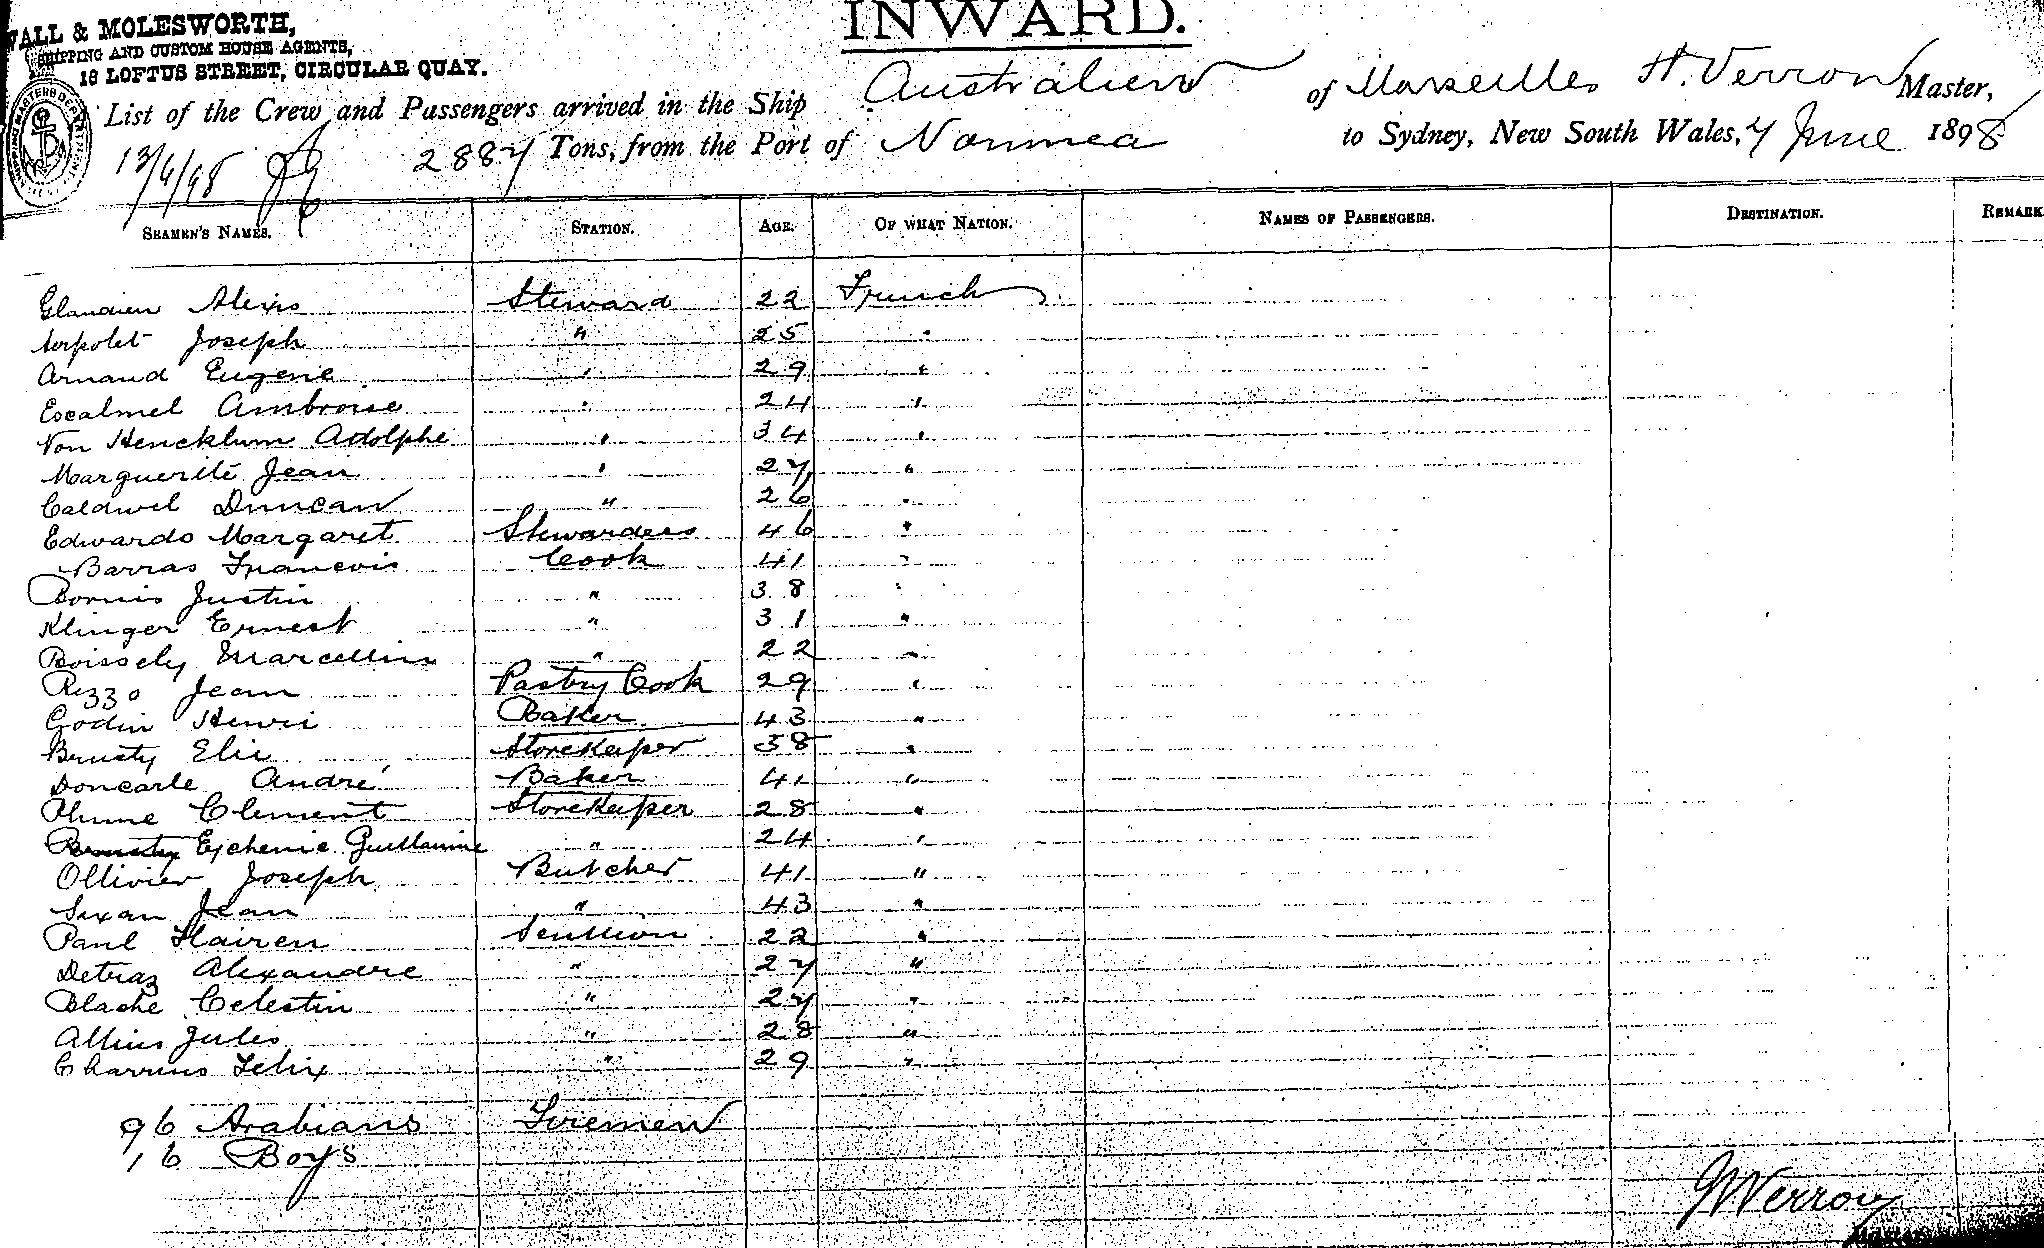 WALL & MOLESWORTH,
SHIPPING AND CUSTOM HOUSE AGENTS,
18 LOFTUS STREET, CIRCULAR QUAY.
INWARD.
List of the Crew and Passengers arrived in the Ship Australien of Marseilles H. Verron Master,
13/6/98 2887 Tons, from the Port of Noumea to Sydney, New South Wales, 7 June 1898
SEAMEN'S NAMES. STATION. AGE. OF WHAT NATION. NAMES OF PASSENGERS. DESTINATION. REMARK
Alexis Steward 22 French
Joseph " 25 "
Arnaud Eugene " 29 "
Escalmel Ambroise " 24 "
Von Hencklum Adolphe " 34 "
Marguerite Jean " 27 "
Caldwel Duncan " 26 "
Edwards Margaret Stewardess 46 "
Barras Francois Cook 41 "
Justin " 38 "
Klinger Ernest " 31 "
Boissely Marcellin " 22 "
Rizzo Jean Pastry Cook 29 "
Godin Henri Baker 43 "
Elie Storekeeper 38 "
Doncarle André Baker 41 "
Plume Clement Storekeeper 28 "
Guillaume " 24 "
Ollivier Joseph Butcher 41 "
Jean " 43 "
Paul 22 "
Detraz Alexandre " 27 "
Blache Celestin " 27 "
Jules " 28 "
Felix " 29 "
96 Arabians Firemen
16 Boys
Verron